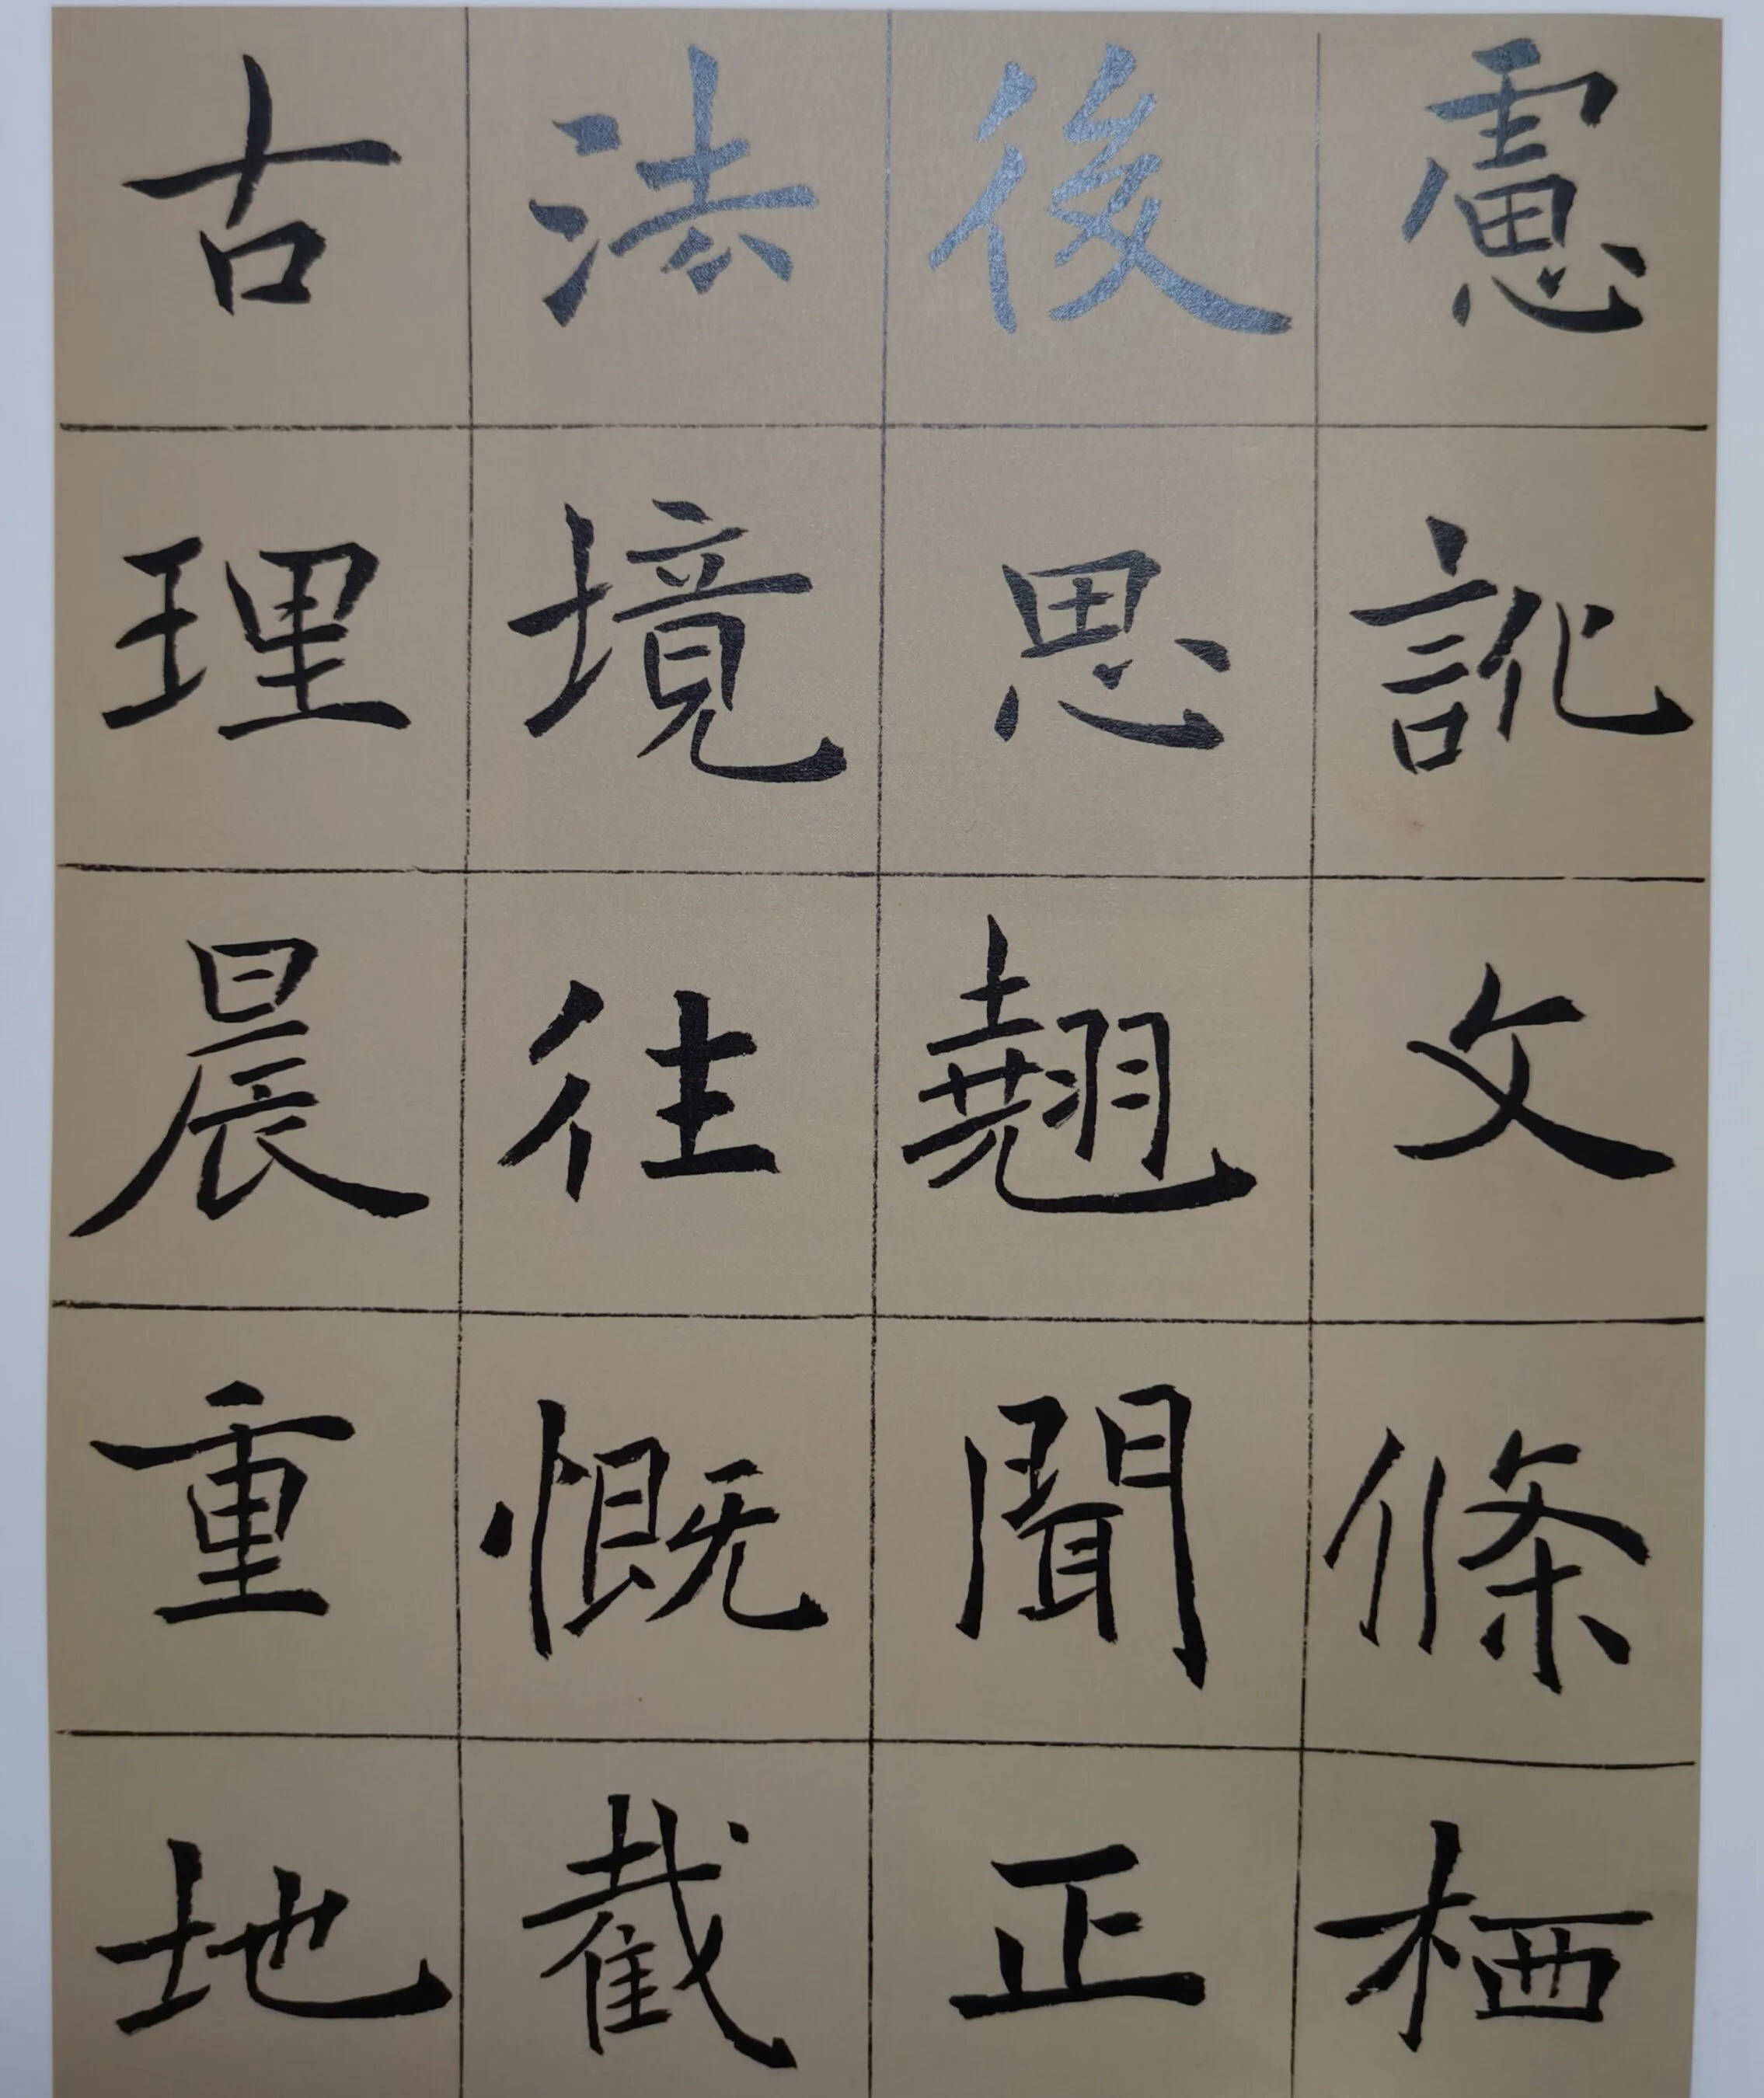 慮訛文條栖
後思翹聞正
法境往慨截
古理晨重地